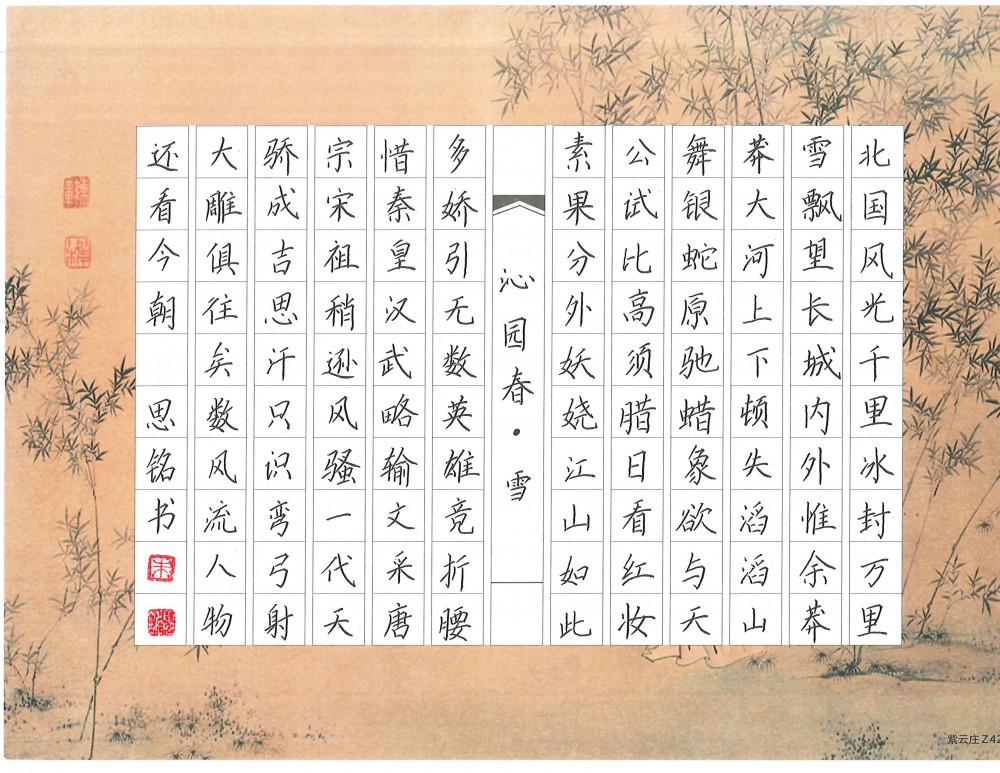 北国风光千里冰封万里
雪飘望长城内外惟余莽
莽大河上下顿失滔滔山
舞银蛇原驰蜡象欲与天
公试比高须腊日看红妆
素果分外妖娆江山如此
沁园春·雪
多娇引无数英雄竞折腰
惜秦皇汉武略输文采唐
宗宋祖稍逊风骚一代天
骄成吉思汗只识弯弓射
大雕俱往矣数风流人物
还看今朝 思铭书
紫云庄 Z42